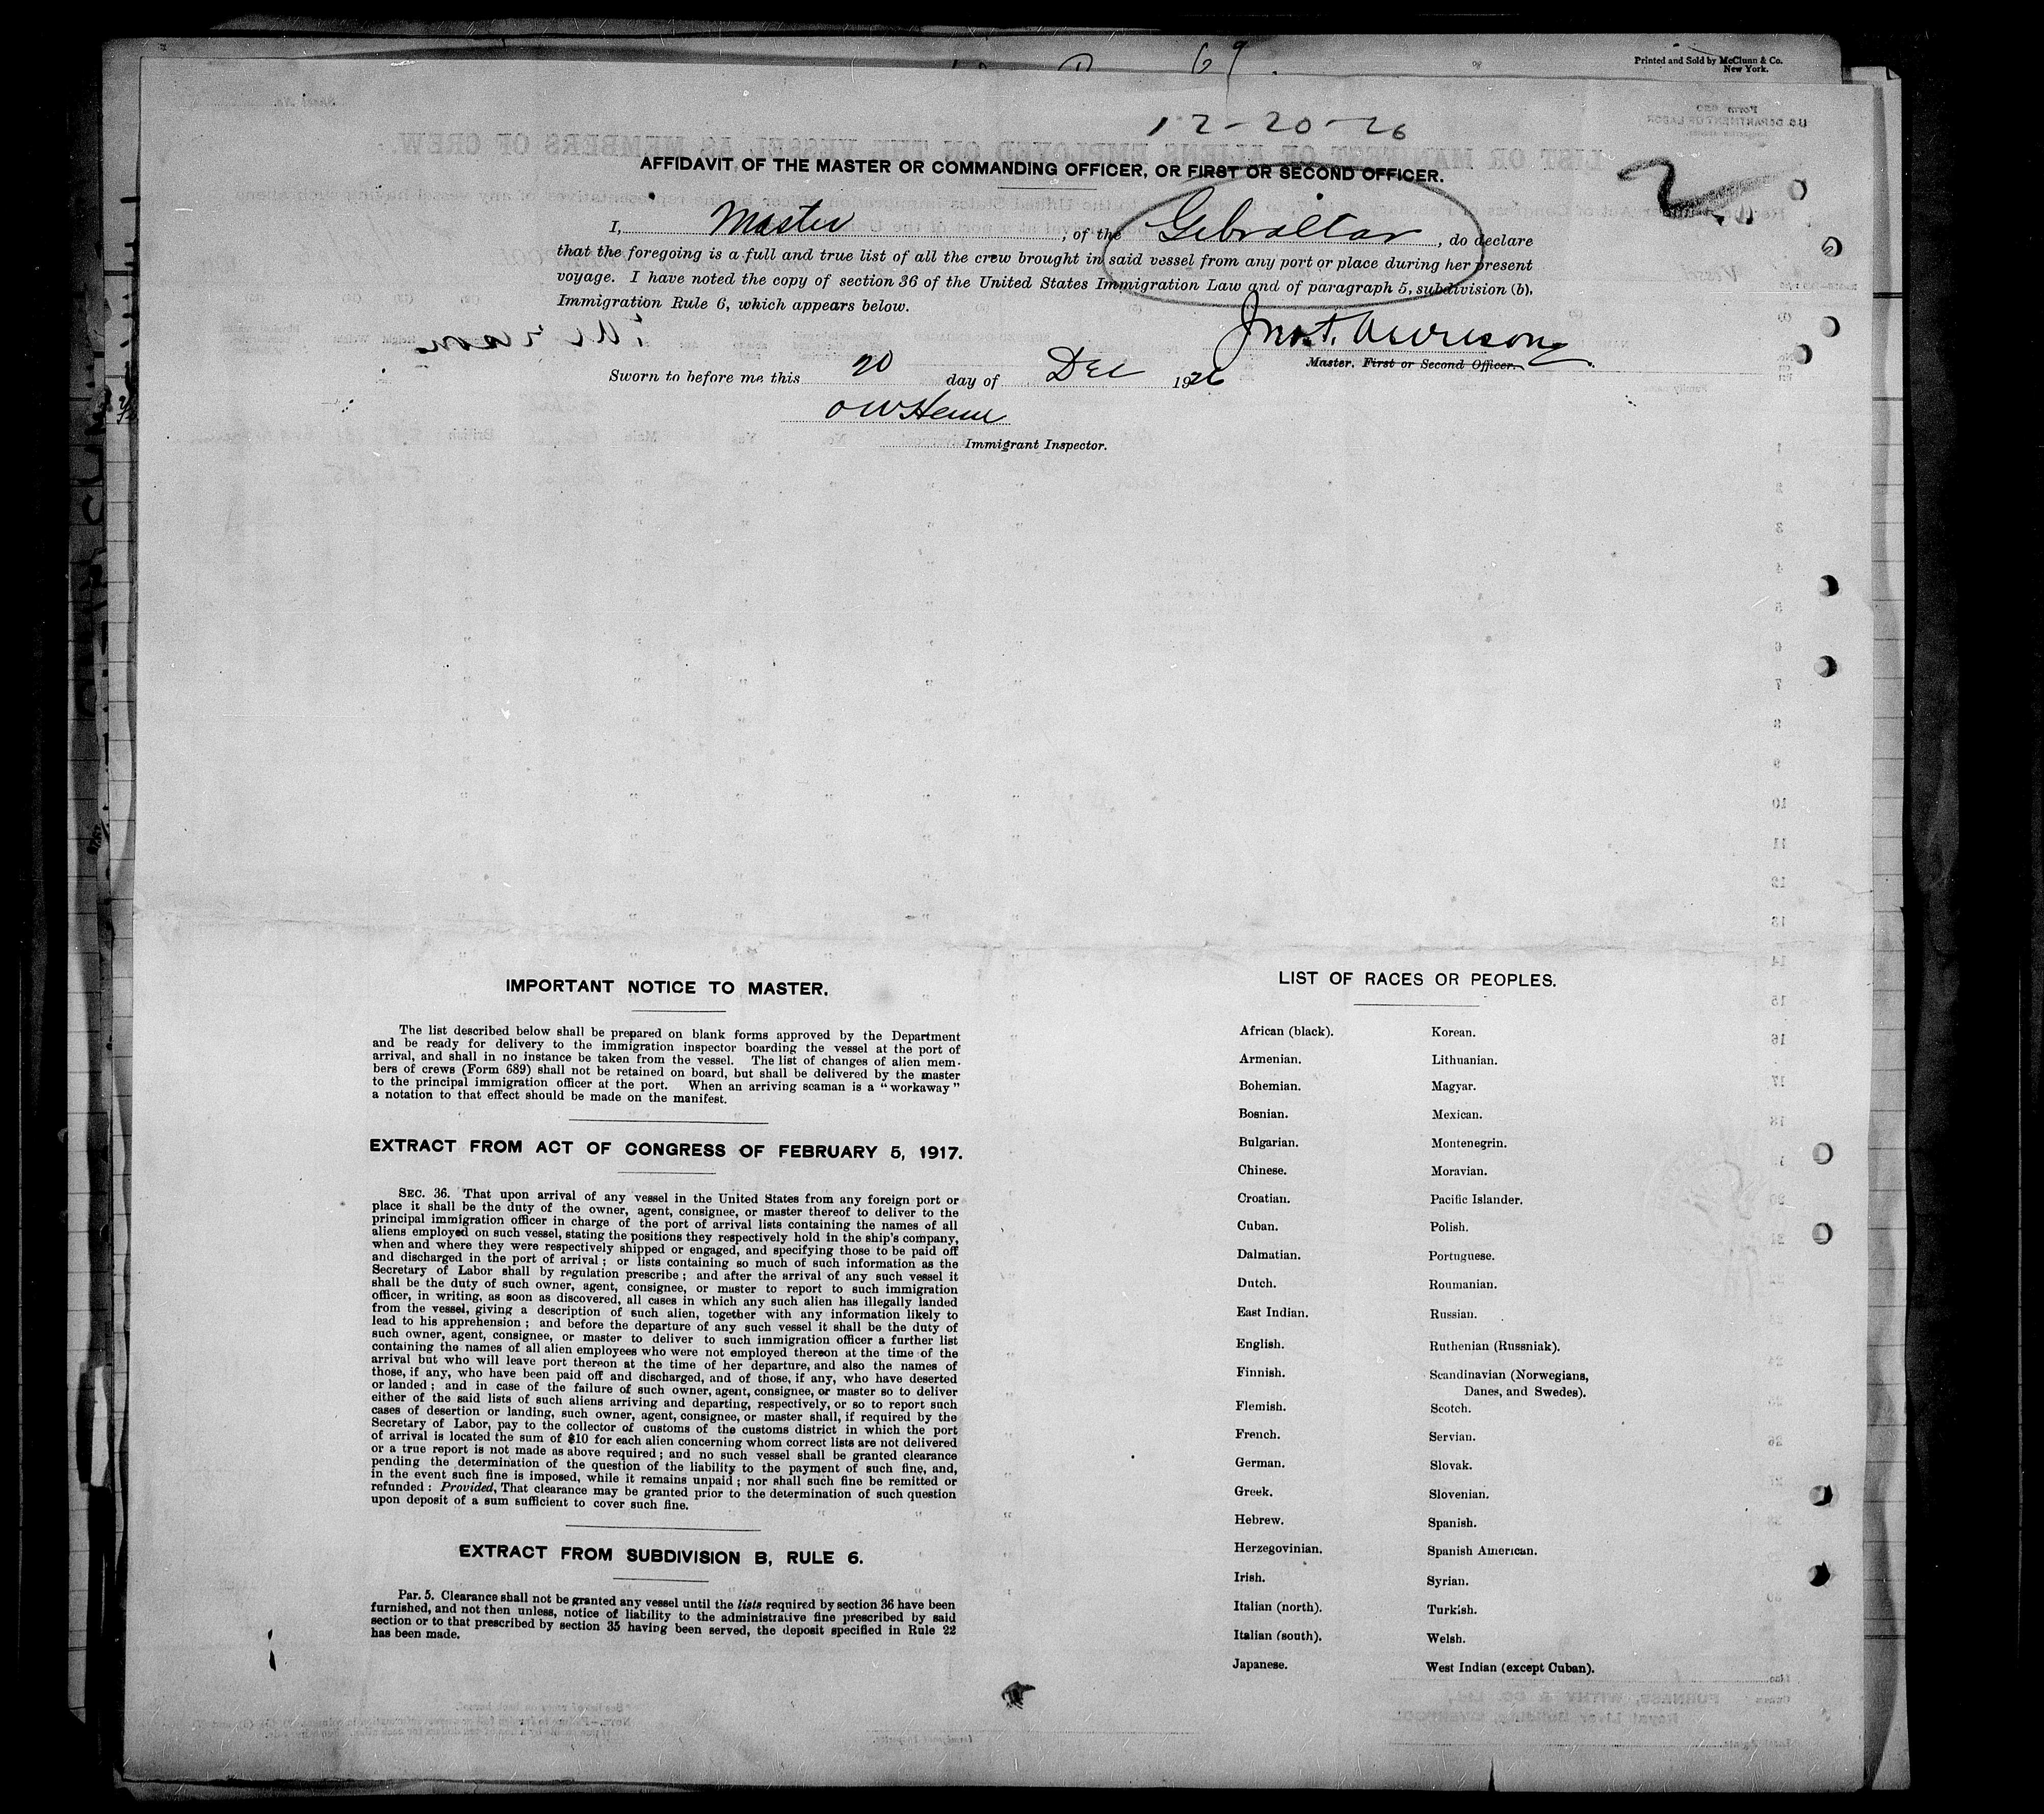 69
Printed and Sold by McClunn & Co.
New York.
12-20-26
AFFIDAVIT OF THE MASTER OR COMMANDING OFFICER, OR FIRST OR SECOND OFFICER.
2
I, Master, of the Gibraltar, do declare
that the foregoing is a full and true list of all the crew brought in said vessel from any port or place during her present
voyage. I have noted the copy of section 36 of the United States Immigration Law and of paragraph 5, subdivision (b),
Immigration Rule 6, which appears below.
Master, First or Second Officer.
Sworn to before me this 20 day of Dec 1926
Immigrant Inspector.
IMPORTANT NOTICE TO MASTER.
The list described below shall be prepared on blank forms approved by the Department
and be ready for delivery to the immigration inspector boarding the vessel at the port of
arrival, and shall in no instance be taken from the vessel. The list of changes of alien mem-
bers of crews (Form 689) shall not be retained on board, but shall be delivered by the master
to the principal immigration officer at the port. When an arriving seaman is a "workaway"
a notation to that effect should be made on the manifest.
EXTRACT FROM ACT OF CONGRESS OF FEBRUARY 5, 1917.
SEC. 36. That upon arrival of any vessel in the United States from any foreign port or
place it shall be the duty of the owner, agent, consignee, or master thereof to deliver to the
principal immigration officer in charge of the port of arrival lists containing the names of all
aliens employed on such vessel, stating the positions they respectively hold in the ship's company,
when and where they were respectively shipped or engaged, and specifying those to be paid off
and discharged in the port of arrival; or lists containing so much of such information as the
Secretary of Labor shall by regulation prescribe; and after the arrival of any such vessel it
shall be the duty of such owner, agent, consignee, or master to report to such immigration
officer, in writing, as soon as discovered, all cases in which any such alien has illegally landed
from the vessel, giving a description of such alien, together with any information likely to
lead to his apprehension; and before the departure of any such vessel it shall be the duty of
such owner, agent, consignee, or master to deliver to such immigration officer a further list
containing the names of all alien employees who were not employed thereon at the time of the
arrival but who will leave port thereon at the time of her departure, and also the names of
those, if any, who have been paid off and discharged, and of those, if any, who have deserted
or landed; and in case of the failure of such owner, agent, consignee, or master so to deliver
either of the said lists of such aliens arriving and departing, respectively, or so to report such
cases of desertion or landing, such owner, agent, consignee, or master shall, if required by the
Secretary of Labor, pay to the collector of customs of the customs district in which the port
of arrival is located the sum of $10 for each alien concerning whom correct lists are not delivered
or a true report is not made as above required; and no such vessel shall be granted clearance
pending the determination of the question of the liability to the payment of such fine, and,
in the event such fine is imposed, while it remains unpaid; nor shall such fine be remitted or
refunded: Provided, That clearance may be granted prior to the determination of such question
upon deposit of a sum sufficient to cover such fine.
EXTRACT FROM SUBDIVISION B, RULE 6.
Par. 5. Clearance shall not be granted any vessel until the lists required by section 36 have been
furnished, and not then unless, notice of liability to the administrative fine prescribed by said
section or to that prescribed by section 35 having been served, the deposit specified in Rule 22
has been made.
LIST OF RACES OR PEOPLES.
African (black). Korean.
Armenian. Lithuanian.
Bohemian. Magyar.
Bosnian. Mexican.
Bulgarian. Montenegrin.
Chinese. Moravian.
Croatian. Pacific Islander.
Cuban. Polish.
Dalmatian. Portuguese.
Dutch. Roumanian.
East Indian. Russian.
English. Ruthenian (Russniak).
Finnish. Scandinavian (Norwegians,
Danes, and Swedes).
Flemish. Scotch.
French. Servian.
German. Slovak.
Greek. Slovenian.
Hebrew. Spanish.
Herzegovinian. Spanish American.
Irish. Syrian.
Italian (north). Turkish.
Italian (south). Welsh.
Japanese. West Indian (except Cuban).